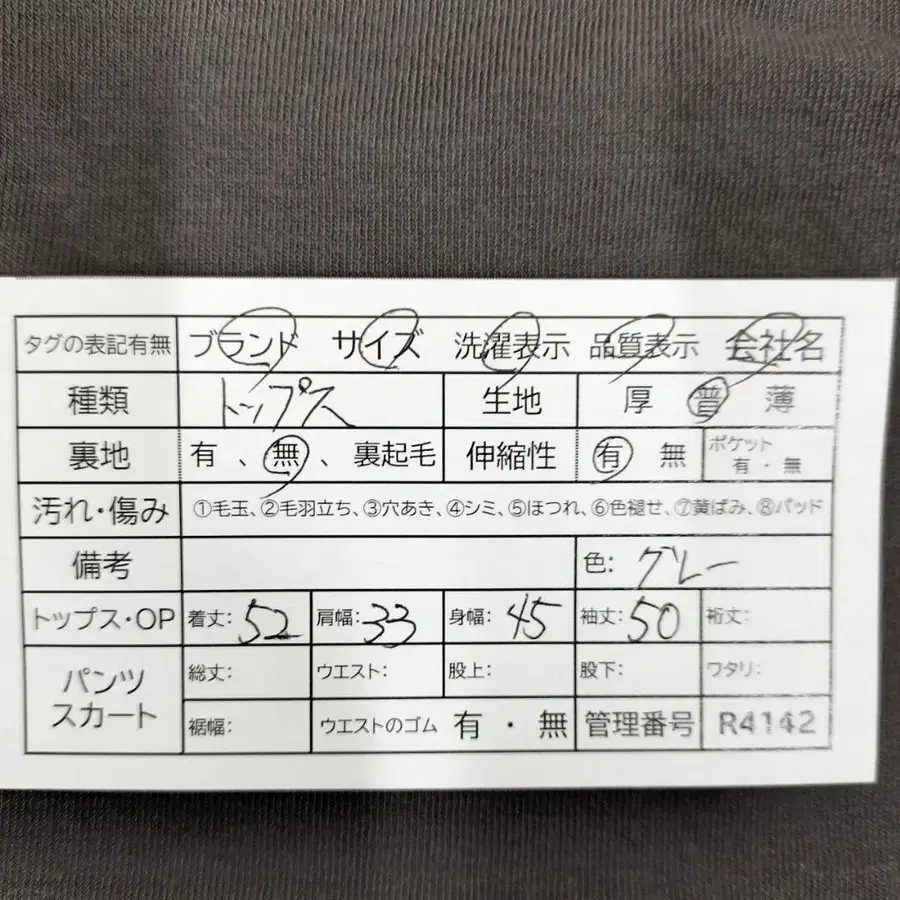 タグの表記有無 ブランド サイズ 洗濯表示 品質表示 会社名
種類 トップス 生地 厚 普 薄
裏地 有 、 無 、 裏起毛 伸縮性 有 無 ポケット 有 ・ 無
汚れ・傷み ①毛玉、②毛羽立ち、③穴あき、④シミ、⑤ほつれ、⑥色褪せ、⑦黄ばみ、⑧パッド
備考 色: グレー
トップス・OP 着丈: 52 肩幅: 33 身幅: 45 袖丈: 50 裄丈:
パンツ スカート 総丈: ウエスト: 股上: 股下: ワタリ:
裾幅: ウエストのゴム 有 ・ 無 管理番号 R4142